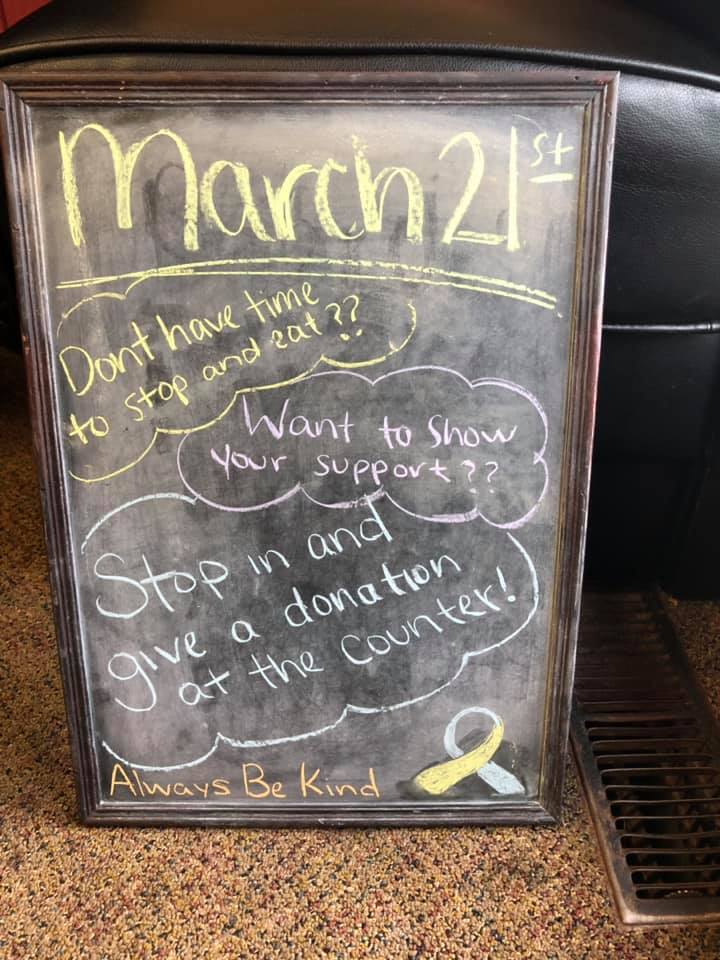 March 21st
Dont have time
to stop and eat??
Want to Show
your support??
Stop in and
give a donation
at the counter!
Always Be Kind